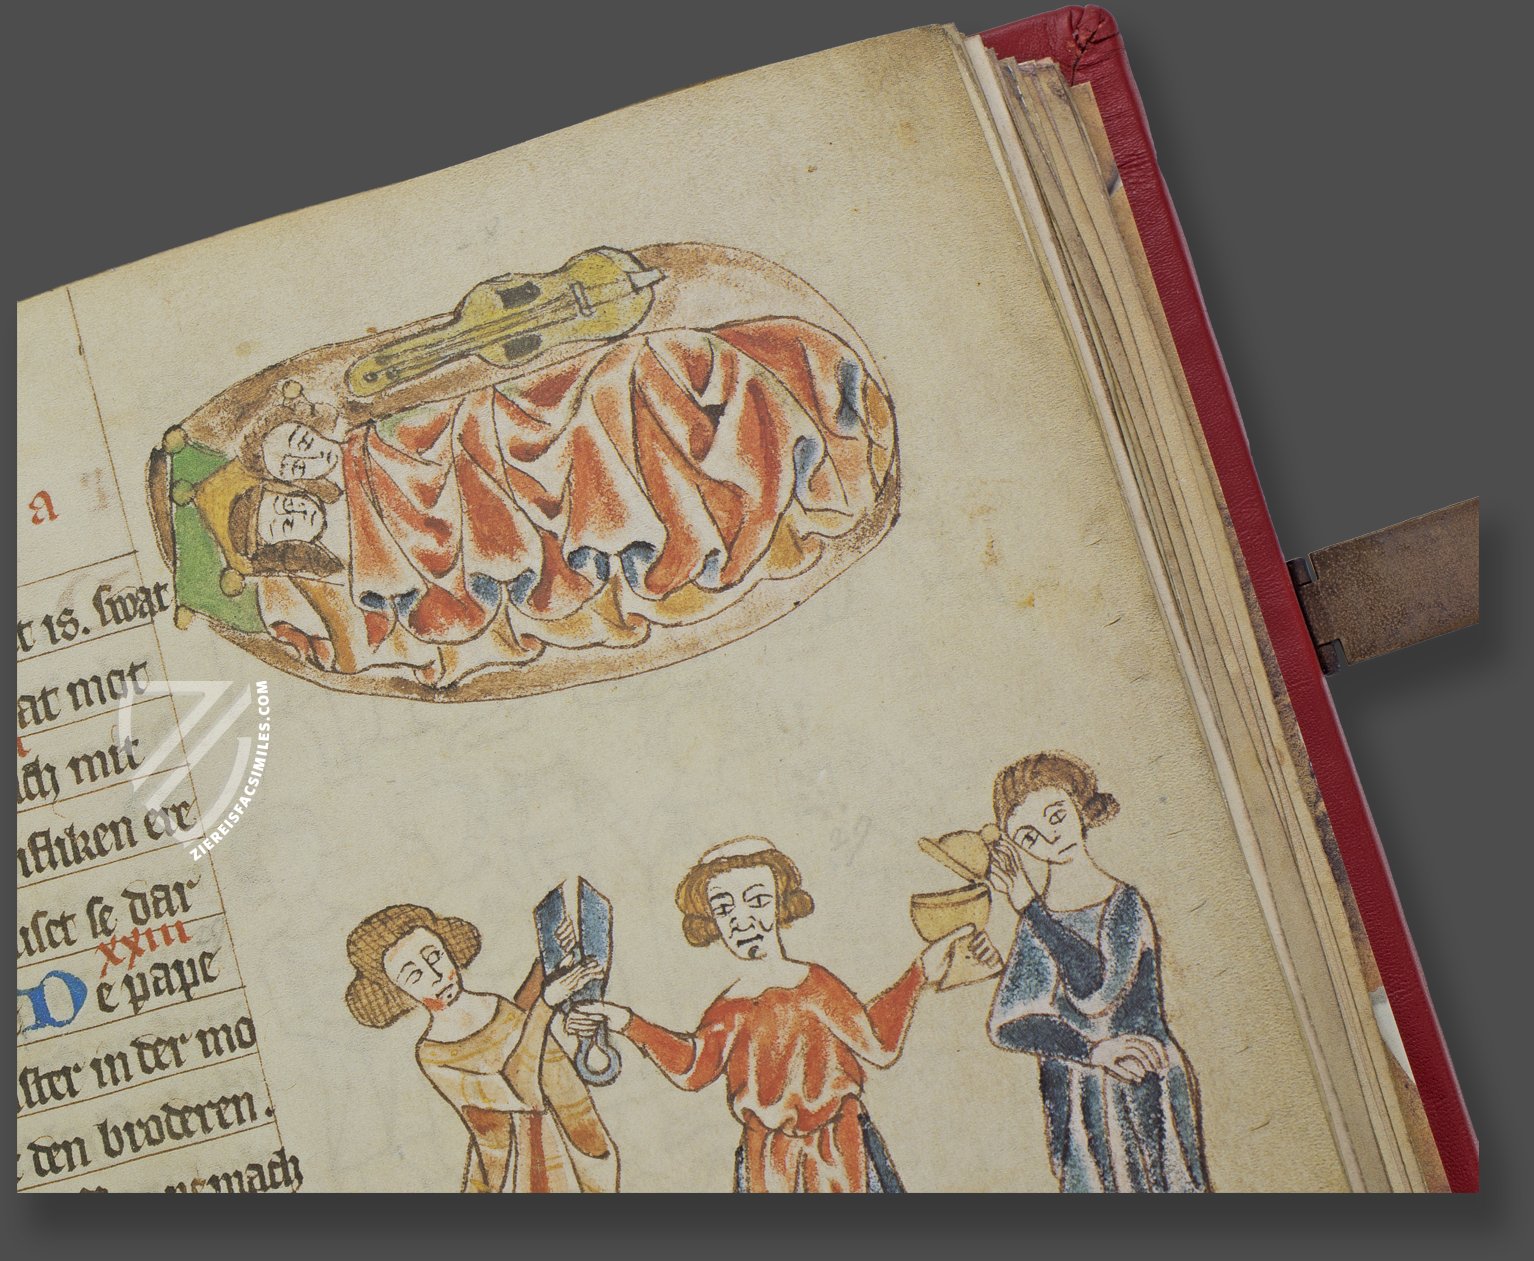 a
t is. swat
at mot
ch mit
nsliken ere
uset se dar
xxiii
De pape
ster in der mo
t den broderen.
nemach
ZIEREISFACSIMILES.COM